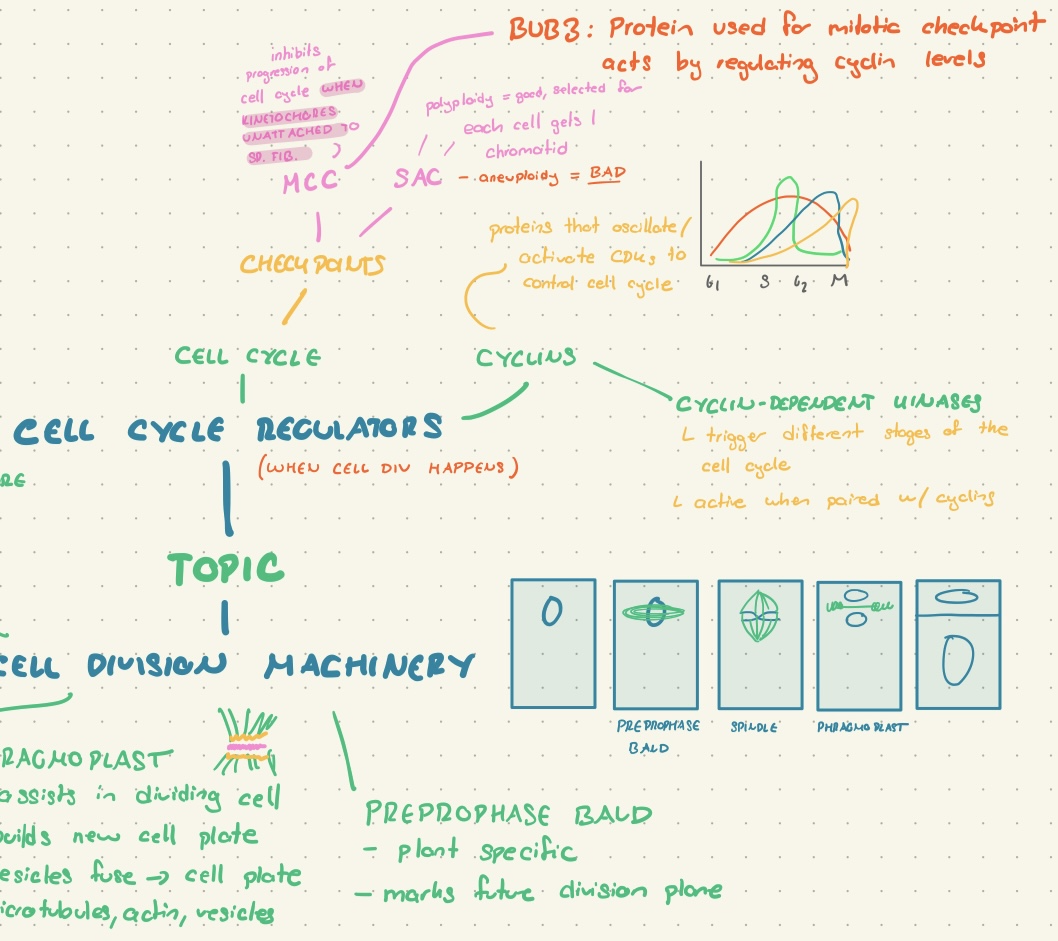 BUB3: Protein used for mitotic checkpoint
acts by regulating cyclin levels
inhibits
progression of
cell cycle WHEN
KINETOCHORES
UNATTACHED TO
SP. FIB.
polyploidy = good, selected for
each cell gets 1
chromatid
MCC
SAC - aneuploidy = BAD
CHECKPOINTS
proteins that oscillate/
activate CDKs to
control cell cycle
G1 S G2 M
CELL CYCLE
CYCLINS
CYCLIN-DEPENDENT KINASES
L trigger different stages of the
cell cycle
L active when paired w/ cyclins
CELL CYCLE REGULATORS
(WHEN CELL DIV HAPPENS)
RE
TOPIC
CELL DIVISION MACHINERY
PREPROPHASE
BAND
SPINDLE
PHRAGMOPLAST
RAGMOPLAST
assists in dividing cell
builds new cell plate
esicles fuse → cell plate
icrotubules, actin, vesicles
PREPROPHASE BAND
- plant specific
- marks future division plane